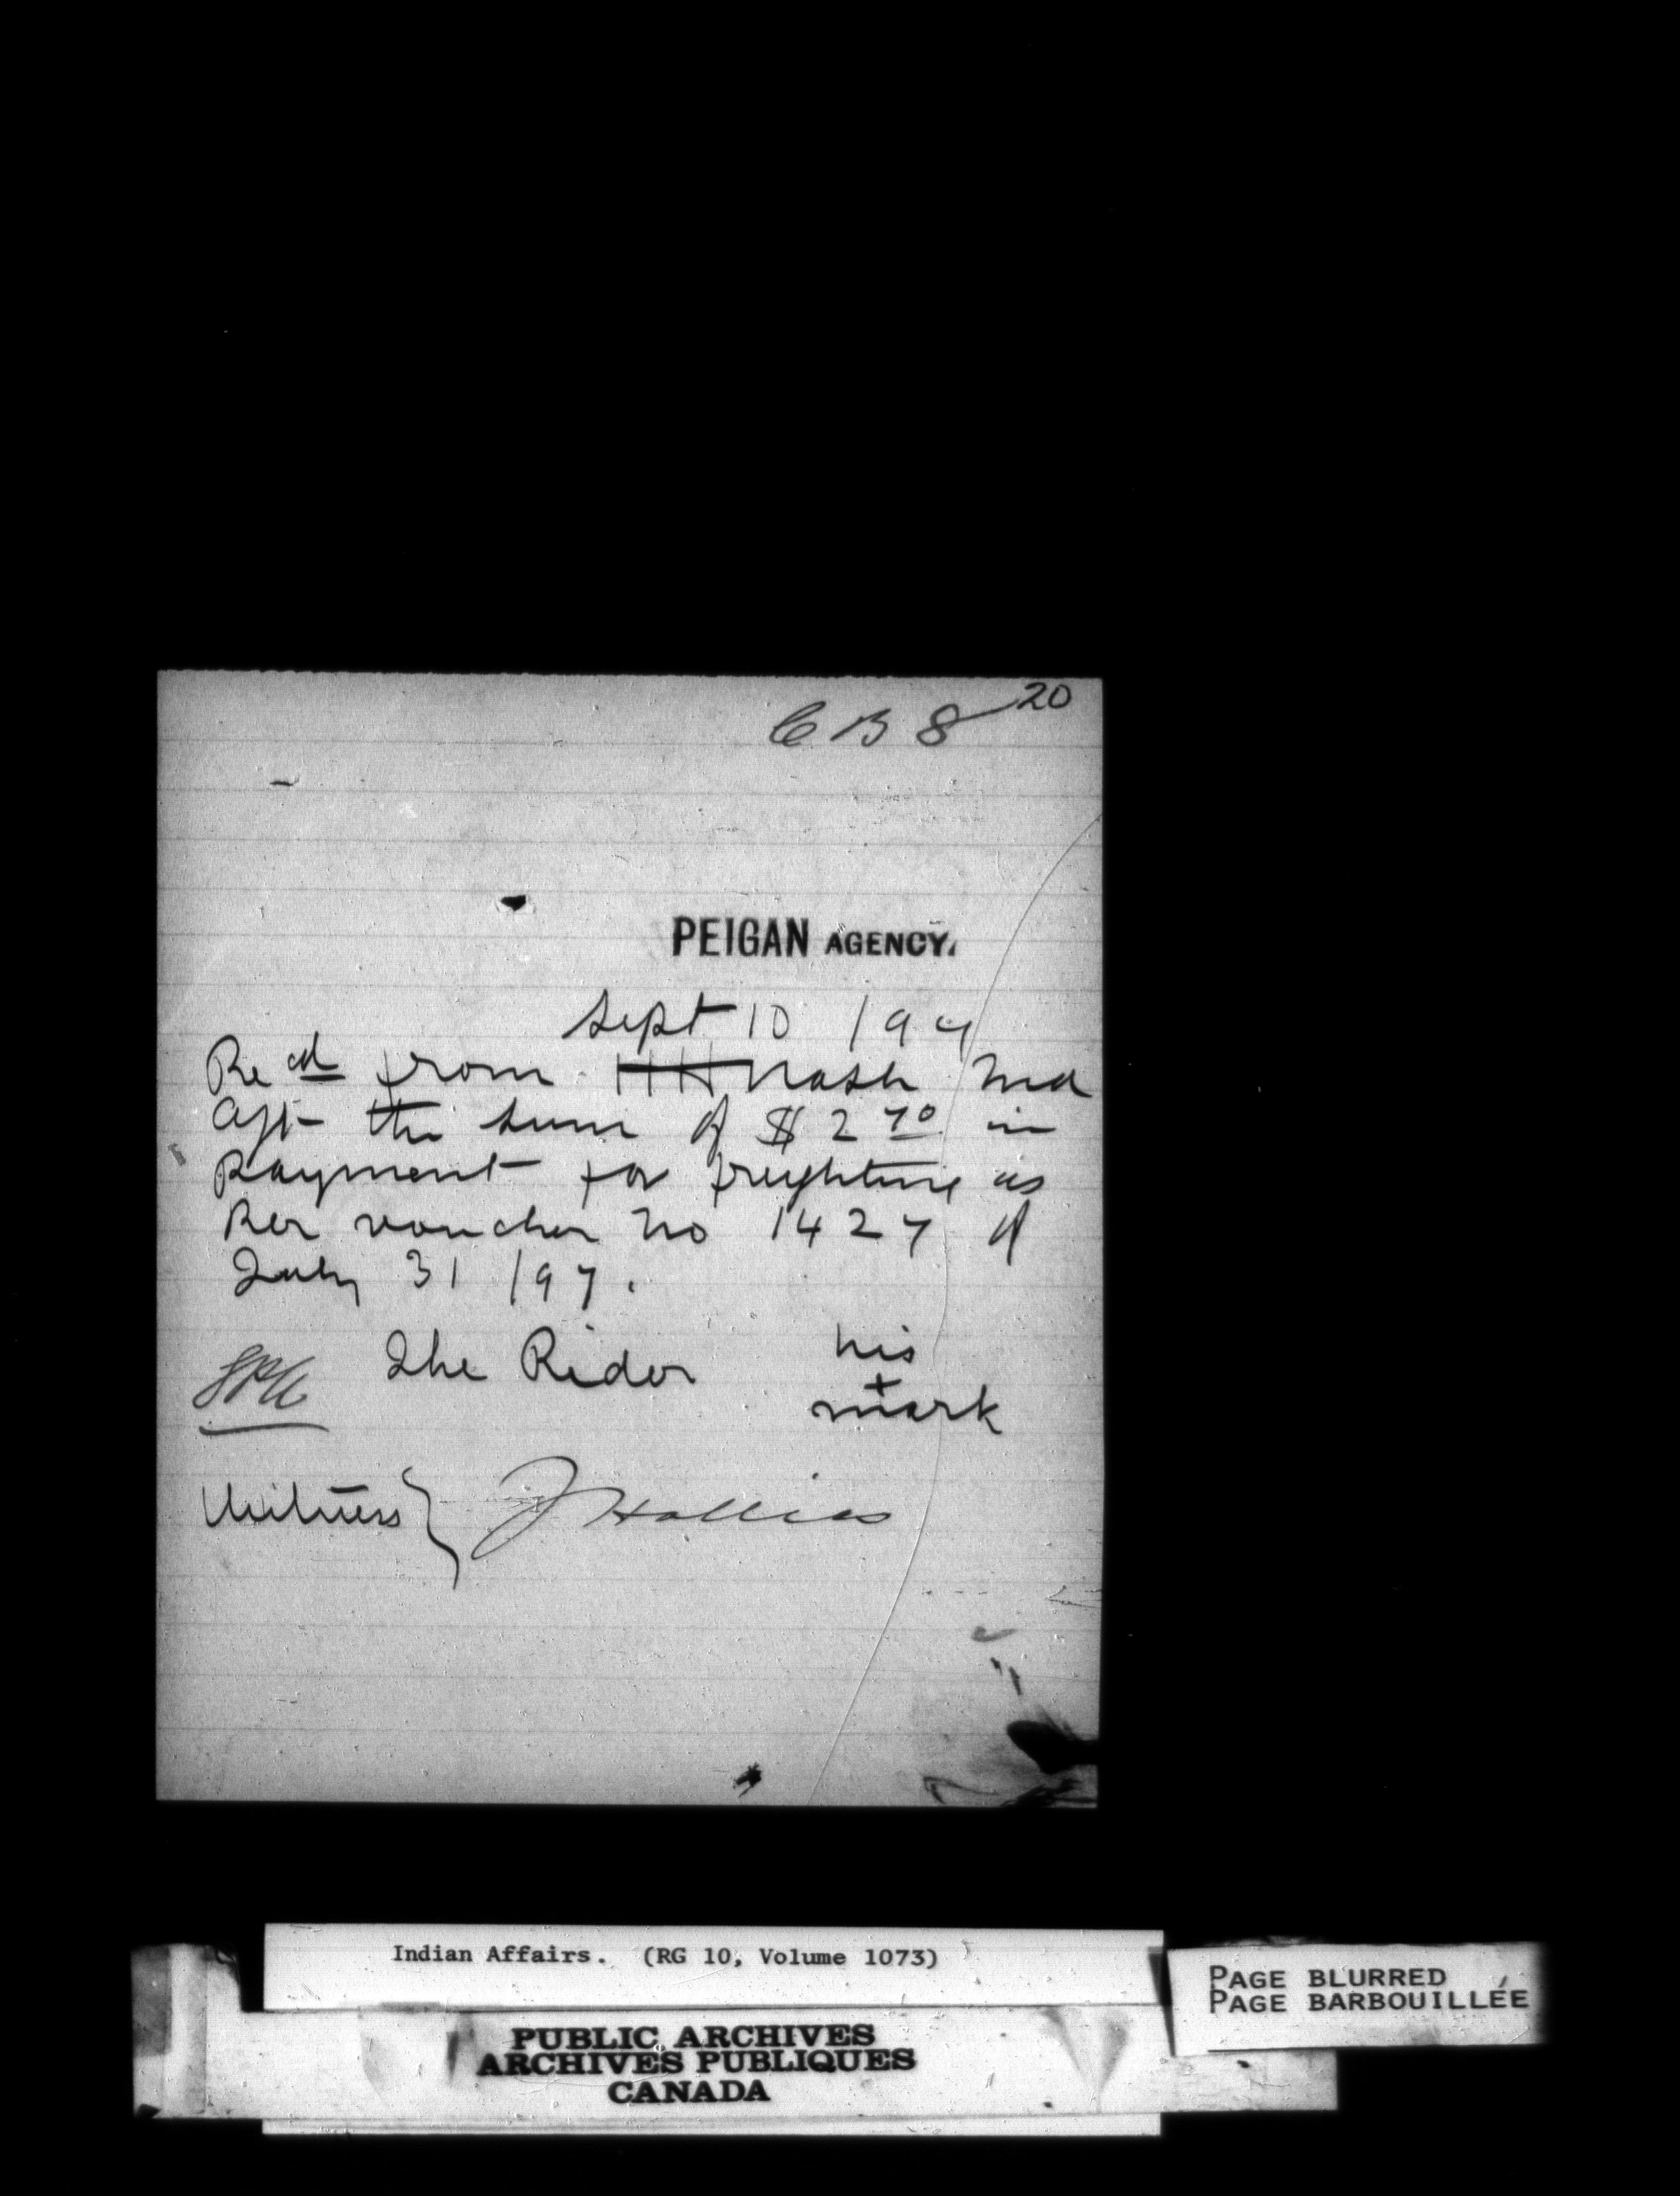 20
C B 8
PEIGAN AGENCY.
Sept 10 /97
Recd from HH Nash Ind
Agt the sum of $ 2 70 in
payment for freighting as
per voucher No 1427 of
July 31 /97.
The Rider his
+
mark
Witness } J Hollies
Indian Affairs. (RG 10, Volume 1073)
PAGE BLURRED
PAGE BARBOUILLÉE
PUBLIC ARCHIVES
ARCHIVES PUBLIQUES
CANADA